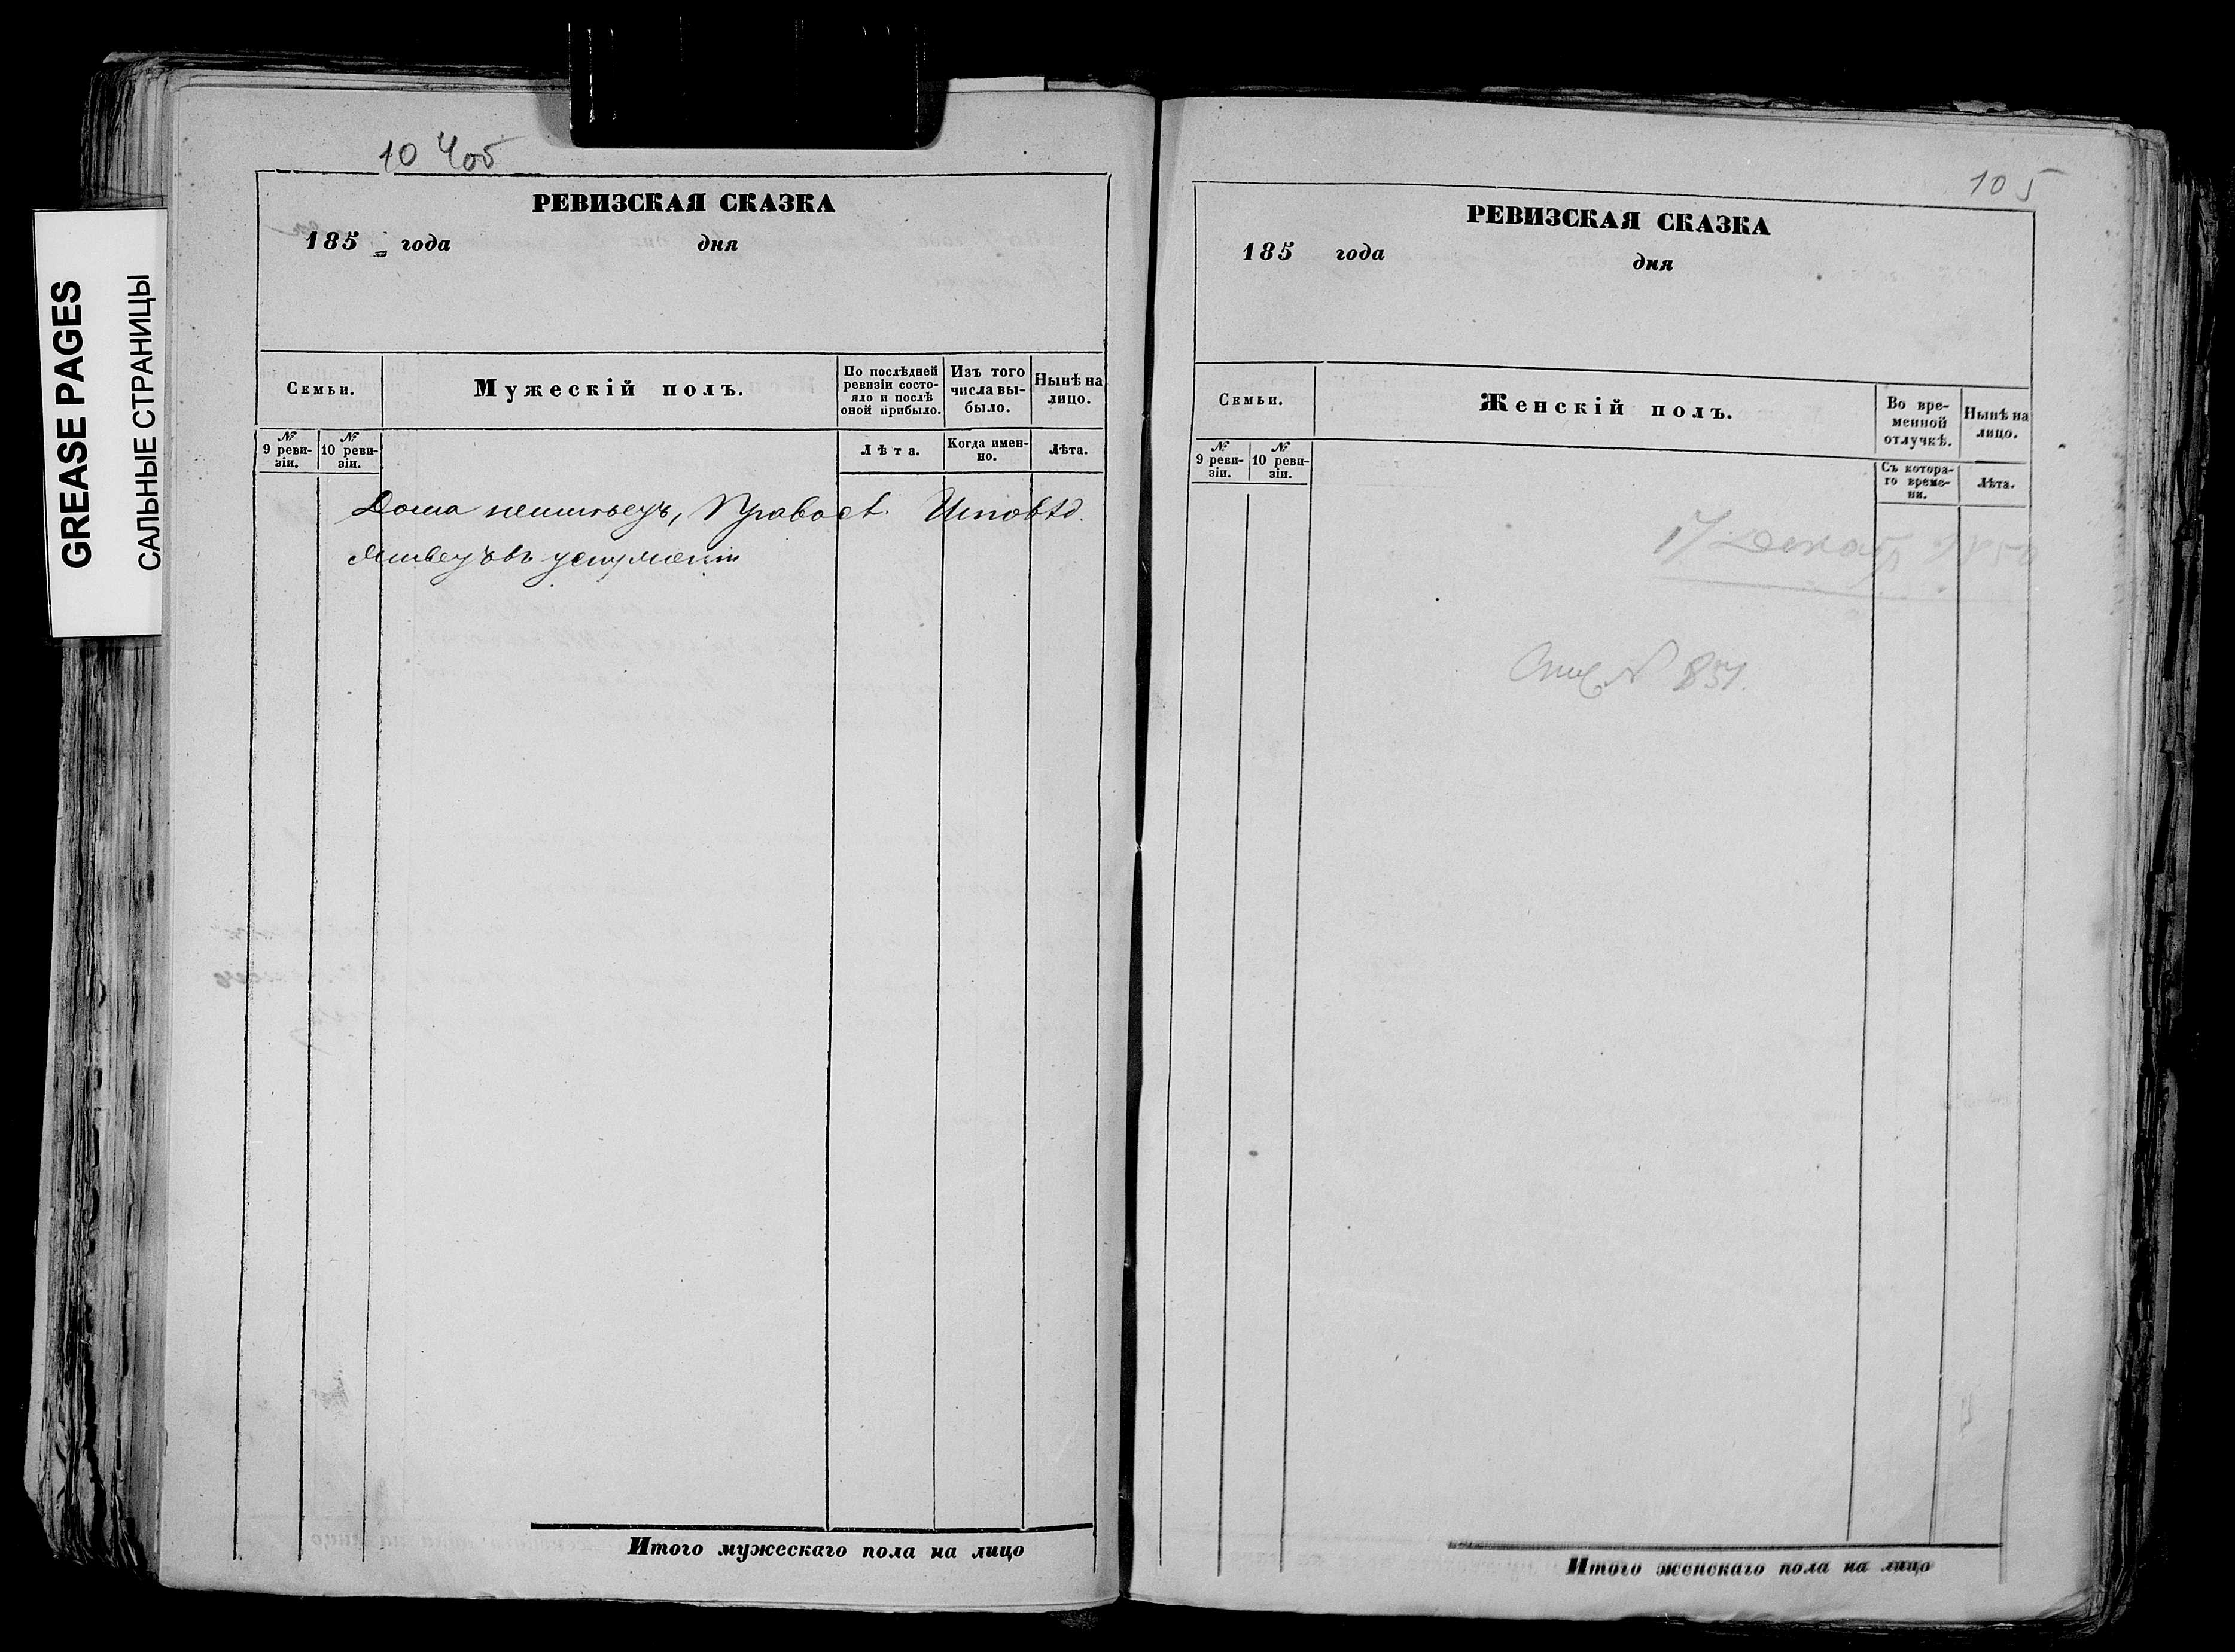 GREASE PAGES
САЛЬНЫЕ СТРАНИЦЫ
10 4об
РЕВИЗСКАЯ СКАЗКА
185 года дня
Семьи.
Мужескій полъ.
По послѣдней ревизіи состо-
яло и послѣ
оной прибыло.
Изъ того
числа вы-
было.
Нынѣ на
лицо.
№
9 реви-
зіи.
№
10 реви-
зіи.
Лѣта.
Когда имен-
но.
Лѣта.
Дома неимѣетъ, Правосл. Исповѣд.
105
РЕВИЗСКАЯ СКАЗКА
185 года дня
Семьи.
Женскій полъ.
Во вре-
менной
отлучкѣ.
Нынѣ на
лицо.
№
9 реви-
зіи.
№
10 реви-
зіи.
Съ котора-
го време-
ни.
Лѣта.
17 Декаб 1850
№ 851.
Итого мужескаго пола на лицо
Итого женскаго пола на лицо